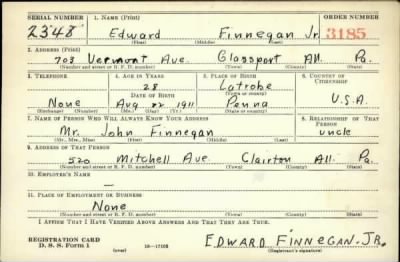 SERIAL NUMBER 1. NAME (Print) ORDER NUMBER
2348 Edward Finnegan Jr. 3185
(First) (Middle) (Last)
2. ADDRESS (Print)
703 Vermont Ave. Glassport All. Pa.
(Number and street or R. F. D. number) (Town) (County) (State)
3. TELEPHONE 4. AGE IN YEARS 5. PLACE OF BIRTH 6. COUNTRY OF CITIZENSHIP
28 Latrobe
DATE OF BIRTH (Town or county)
None Aug 22 1911 Penna U.S.A.
(Exchange) (No.) (Mo.) (Day) (Yr.) (State or country)
7. NAME OF PERSON WHO WILL ALWAYS KNOW YOUR ADDRESS 8. RELATIONSHIP OF THAT PERSON
Mr. John Finnegan uncle
(Mr., Mrs., Miss) (First) (Middle) (Last)
9. ADDRESS OF THAT PERSON
520 Mitchell Ave. Clairton All. Pa.
(Number and street or R. F. D. number) (Town) (County) (State)
10. EMPLOYER'S NAME
—
11. PLACE OF EMPLOYMENT OR BUSINESS
None
(Number and street or R. F. D. number) (Town) (County) (State)
I AFFIRM THAT I HAVE VERIFIED ABOVE ANSWERS AND THAT THEY ARE TRUE.
REGISTRATION CARD
D. S. S. Form 1 (over) 16—17105 EDWARD FINNEGAN. JR.
(Registrant's signature)